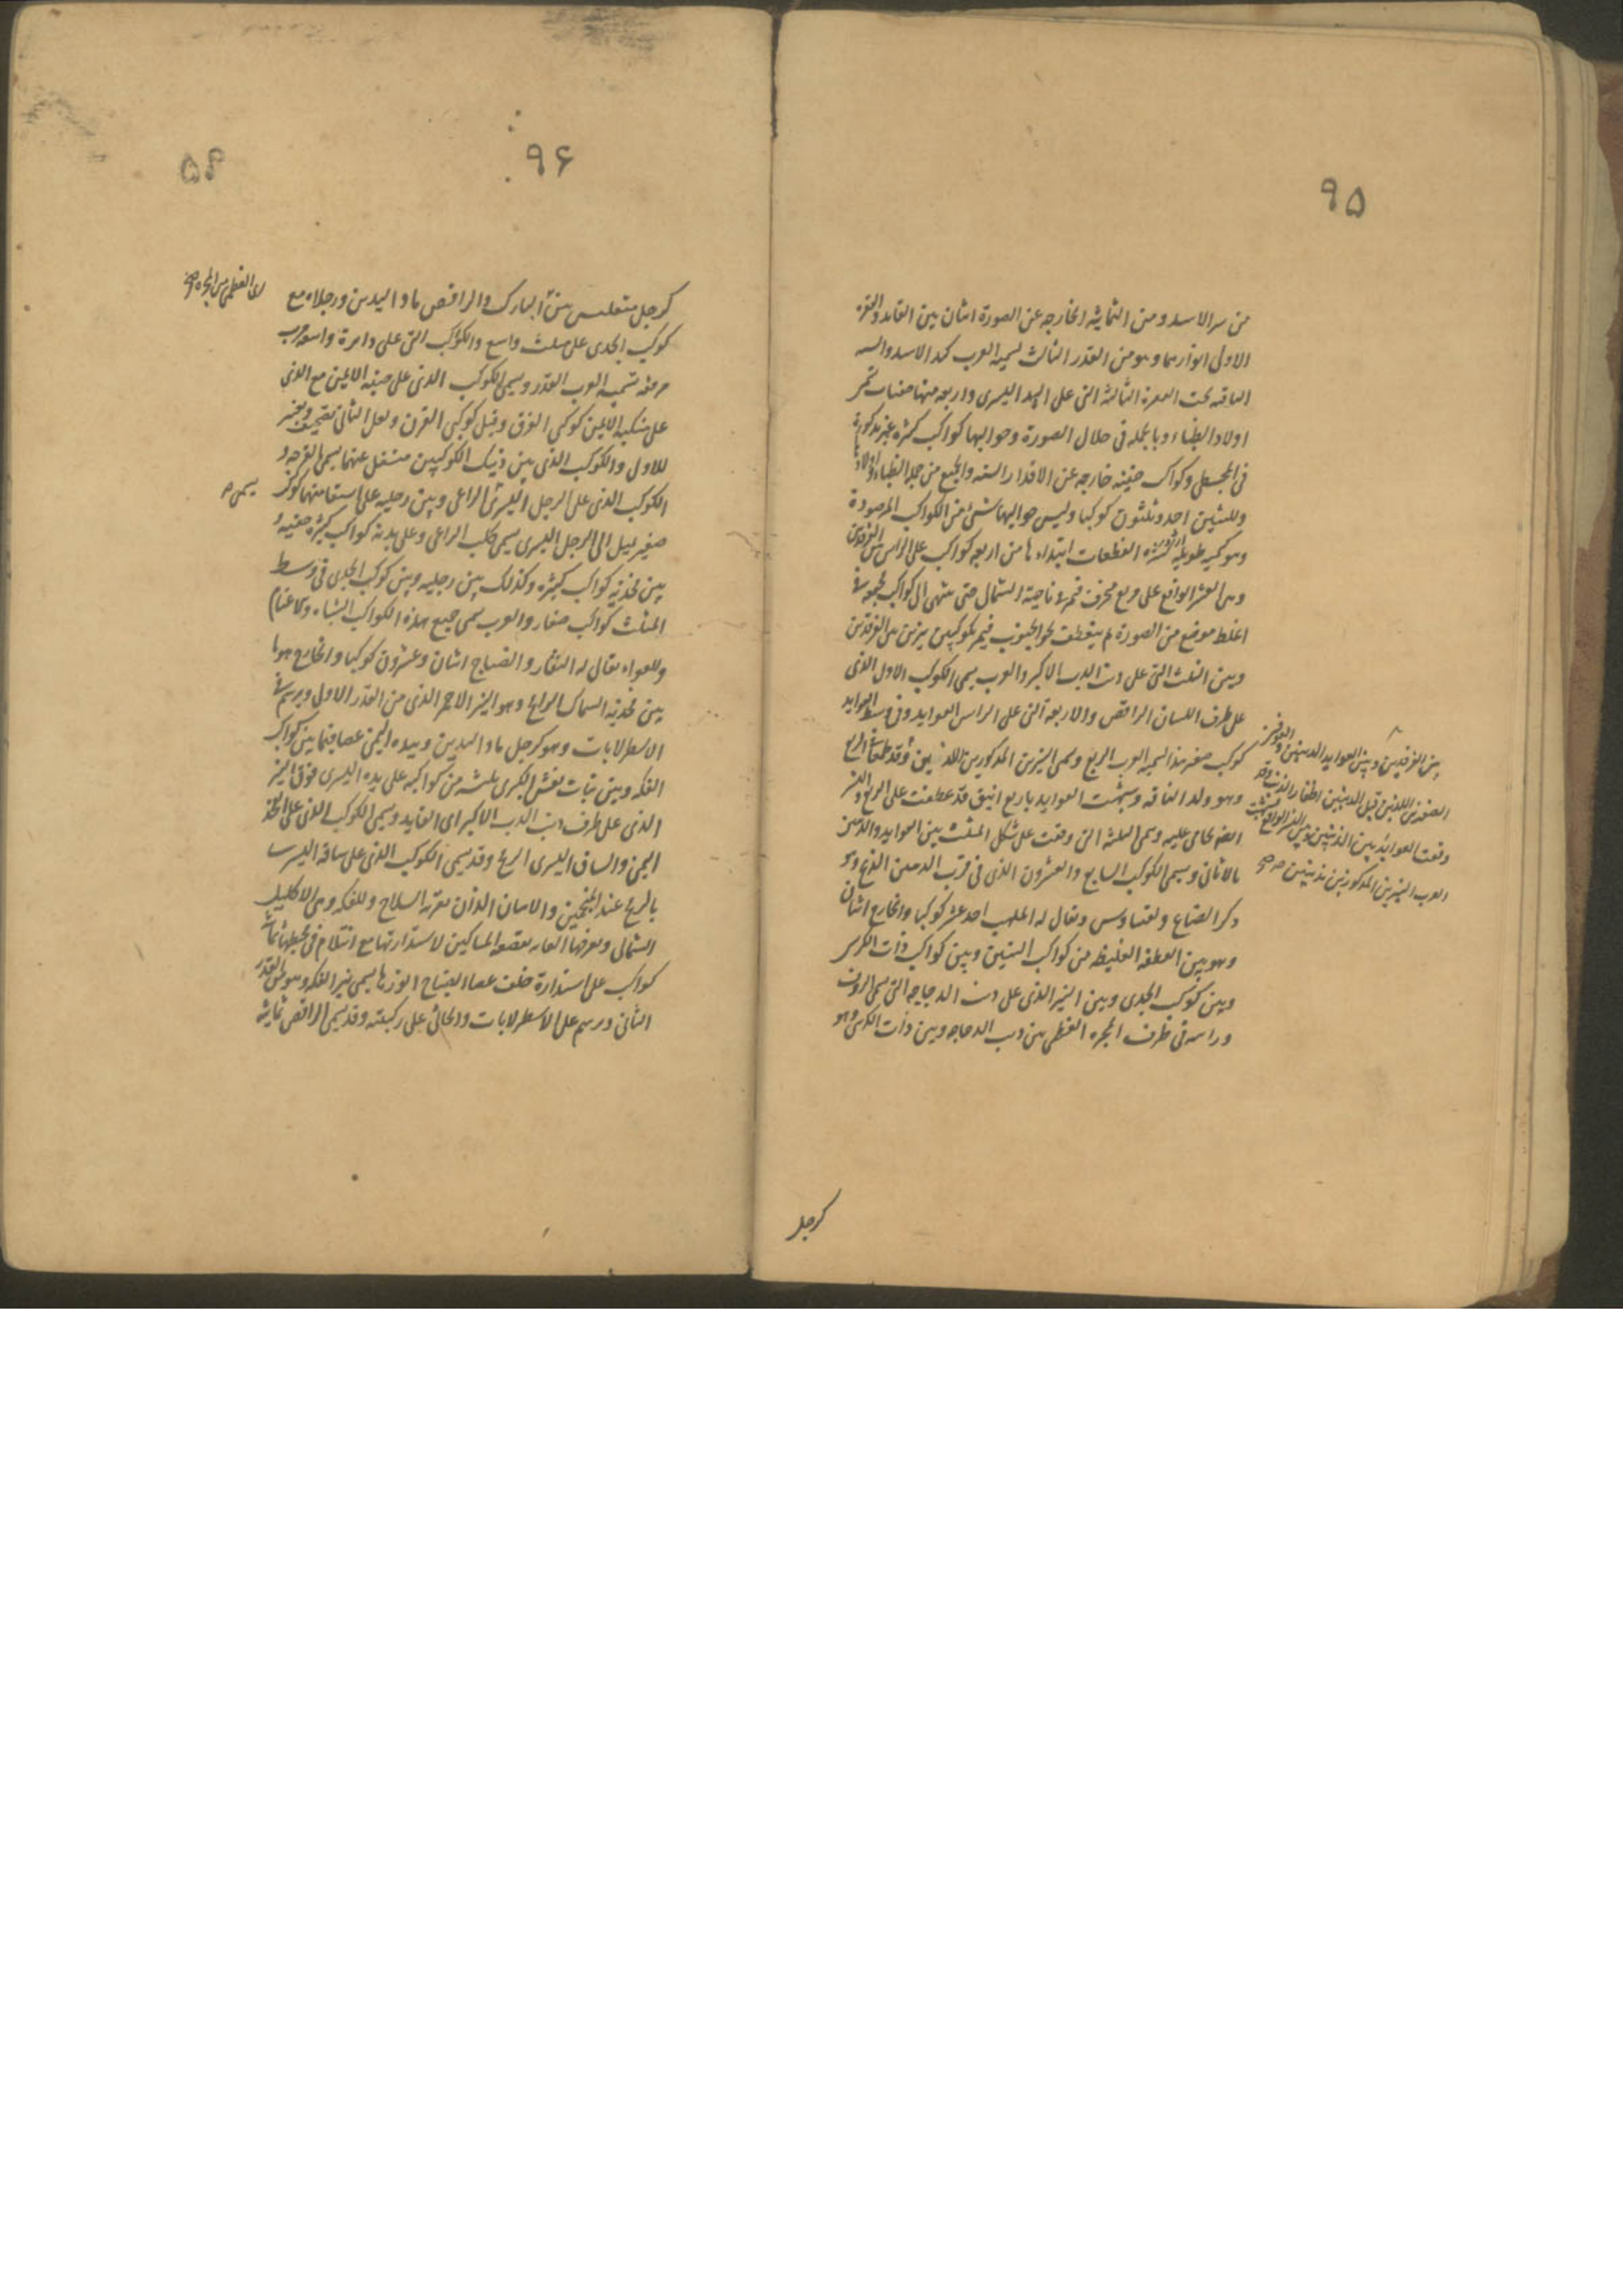 ٩٥
من سر الاسد ومن الثمانية الخارجه عن الصورة اثنان بين القايد والقفزة
الاولى انورهما وهو من القدر الثالث لسميه العرب كبد الاسد والسه
الباقية تحت القفزة الثالثة التى على اليد اليسرى واربعه منها خفيات تسمى
اولاد الظباء وبالجملة فى خلال الصورة وحواليها كواكب كثيره غير مذكورة
فى المجسطى وكواكب خفيته خارجه عن الاقدار السته والجميع من جملة الظباء واولادها
وللتنين احد وثلثون كوكبا وليس حواليها شئ من الكواكب المرصودة
وهو كحية طويلة كثيرة العطفات ابتداءها من اربعه كواكب على الراس بين الفرقدين
وبين النسر الواقع على مربع منحرف فتمر فى ناحية الشمال حتى تنتهى الى كواكب مجتمعة فى
اغلظ موضع من الصورة ثم ينعطف نحو الجنوب فيمر بكوكبين نيرين بين الفرقدين
وبين النعش التى على ذنب الدب الاكبر والعرب يسمى الكوكب الاول الذى
على طرف اللسان الراقص والاربعة التى على الراس العوايد وفى وسط العوايد
كوكب صغير جدا لسميه العرب الربع وسمى النيرين المذكورين الذئبين وقد طمعا فى الربع
وهو ولد الناقه وشبهت العوايد باربع انيق قد عطفت على الربع والنسر
الواقع يحامى عليه وسمى الثلثة التى وقعت على شكل المثلث بين العوايد والذئبين
بالاثافى وسمى الكوكب السابع والعشرون الذى فى قرب الذئبين الذيخ وهو
ذكر الضباع ولقيقاوس ويقال له الملهب احد عشر كوكبا والخارج اثنان
وهو بين العطفه الغليظه من كواكب التنين وبين كواكب ذات الكرسى
وبين كوكب الجدى وبين النير الذى على ذنب الدجاجه التى يسمى الردف
وراسه فى طرف المجره العظمى بين ذنب الدجاجه وبين ذات الكرسى وهو
بين الفرقدين وبين العوايد الذئبين والكوكبين
الصغيرين اللذين قبل الذئبين اظفار الذئب وقد
وقعت العوايد بين الذئبين وبين النسر الواقع شبهت
العرب النيرين المذكورين بذئبين صح
كرجل
٩۶
۵٩
كرجل متقلنس بين المبارك والراقص ماد اليدين ورجلاه مع
كوكب الجدى على مثلث واسع والكواكب التى على دايرة واسعه قرب
مرفقه تسميه العرب القدر ويسمى الكوكب الذى على جنبه الايمن مع الذى
على منكبه الايمن كوكبى الفرق وقيل كوكبى القرن ولعل الثانى تصحيف وتغيير
للاول والكوكب الذى بين ذينك الكوكبين متنفل عنهما يسمى القرحه و
الكوكب الذى على الرجل اليسرى الراعى وبين رجليه على استقامتهما كوكب
صغير يميل الى الرجل اليسرى يسمى كلب الراعى وعلى بدنه كواكب كثيره خفيه و
بين فخذيه كواكب كثيره وكذلك بين رجليه وبين كوكب الجدى فى وسط
المثلث كواكب صغار والعرب يسمى جميع هذه الكواكب الشاء والاغنام
وللعواء يقال له النقار والصياح اثنان وعشرون كوكبا والخارج هو ما
بين فخذيه السماك الرامح وهو النير الاحمر الذى من القدر الاول ويرسم فى
الاسطرلابات وهو كرجل ماد اليدين وبيده اليمنى عصا فيما بين كواكب
الفكه وبين بنات نعش الكبرى ثلثه من كواكبه على يده اليسرى فوق النير
الذى على طرف ذنب الدب الاكبر اى القايد ويسمى الكوكب الذى على الفخذ
اليمنى والساق اليسرى الرمح وقد يسمى الكوكب الذى على ساقه اليسرى
بالرمح عند المنجمين والاثنان اللذان بقربه السلاح وللفكه وهى الاكليل
الشمالى ويعرفها العامه بقصعه المساكين لاستدارتها مع انثلام فى محيطها ثمانيه
كواكب على استدارة خلف عصا الصياح انورها يسمى نير الفكه وهو من القدر
الثانى ورسم على الاسطرلابات والجاثى على ركبته وقد يسمى الراقص ثمانيه
يسمى م